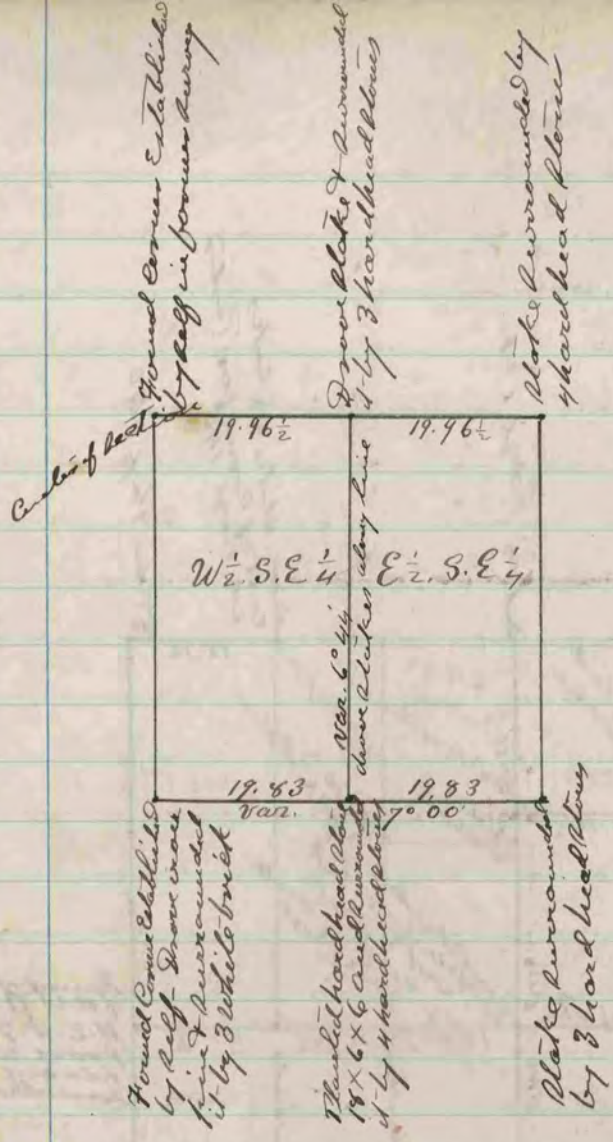 Center of Section
Found Corner Established
by self in former survey
Drove stake & surrounded
it by 3 hard head stones
Stake surrounded by
4 hard head stones
19.96½
19.96½
W½. S.E ¼
E½. S.E ¼
Var. 6° 44'
drove stakes along line
19.83
19.83
Var.
7° 00'
Found Corner Established
by self - Drove iron
pin & surrounded
it by 3 White brick
Planted hard head stone
18 x 6 x 6 and surrounded
it by 4 hard head stones
Stake surrounded
by 3 hard head stones